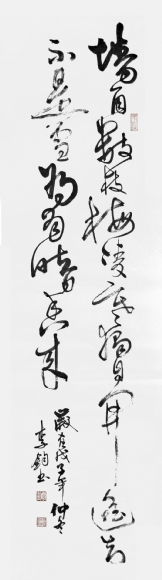 墙角数枝梅凌寒独自开遥知
不是雪为有暗香来
岁在戊子年仲冬
李钧书